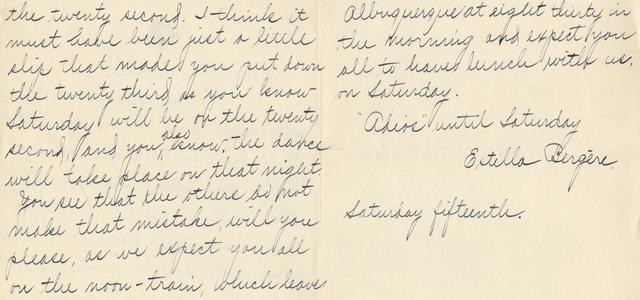 the twenty second. I think it
must have been just a little
slip that made you put down
the twenty third, as you know
Saturday will be on the twenty
second, and you, also know, the dance
will take place on that night.
You see that the others do not
make that mistake, will you
please, as we expect you all
on the noon-train, which leaves
Albuquerque at eight thirty in
the morning and expect you
all to have lunch with us,
on Saturday.
"Adios" until Saturday
Estella Bergère.
Saturday fifteenth.